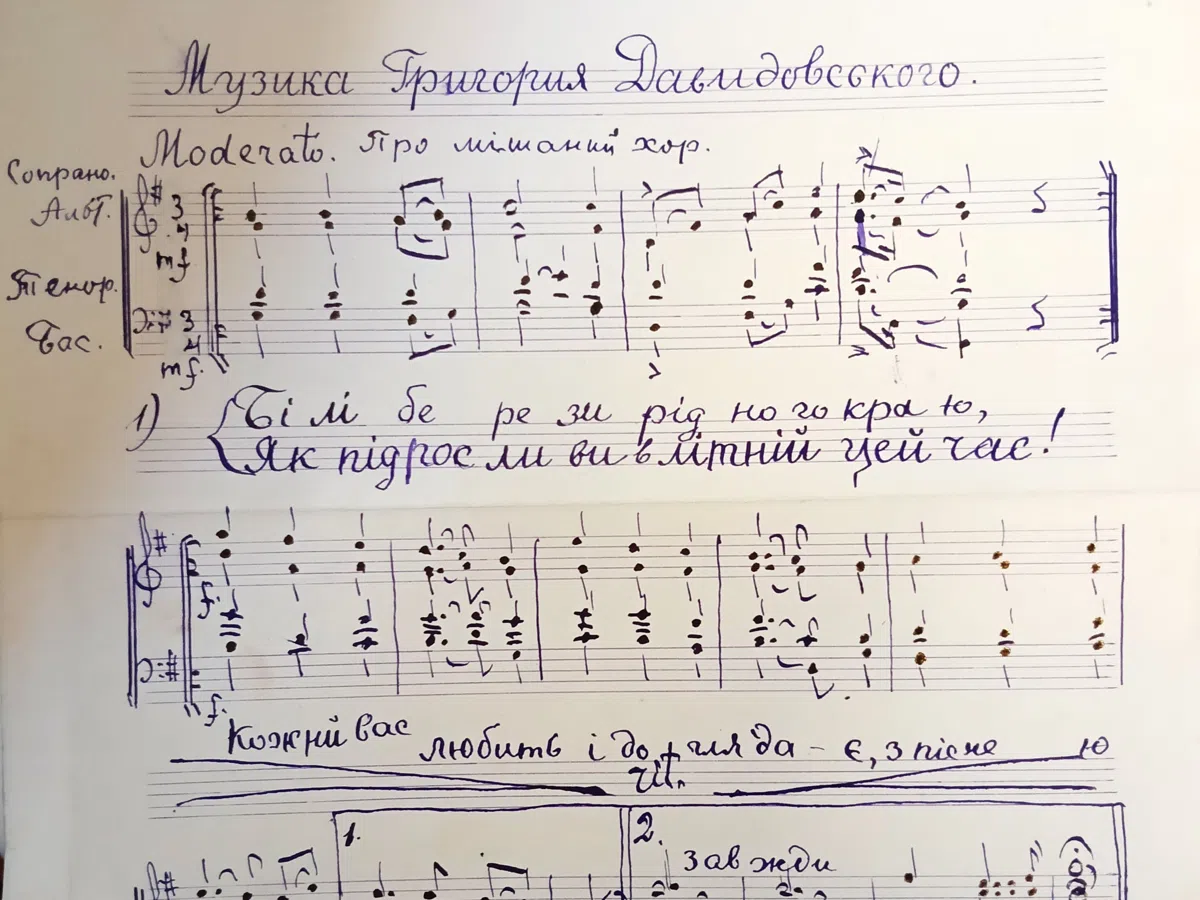 Музика Григория Давидовського.
Moderato. Про мішаний хор.
Сопрано.
Альт.
3
4
mf
Тенор.
Бас.
3
4
mf.
1) Білі бе ре зи рід но го кра ю,
Як підрос ли ви в літній цей час!
f.
f.
Кожний вас любить і до гля да - є, з пісне ю
1.
2.
завжди